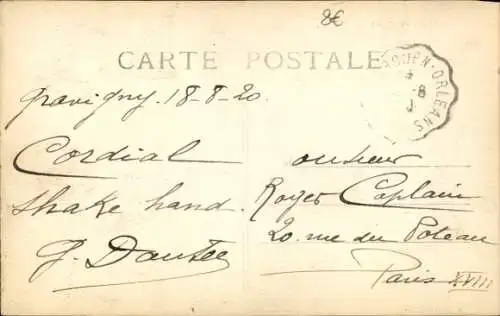 8€
CARTE POSTALE
ROUEN-ORLEANS
8
Gravigny 18-8-20.
Cordial
shake hand.
J. Dautée
onsieur
Roger Caplain
20. rue du Poteau
Paris XVIII